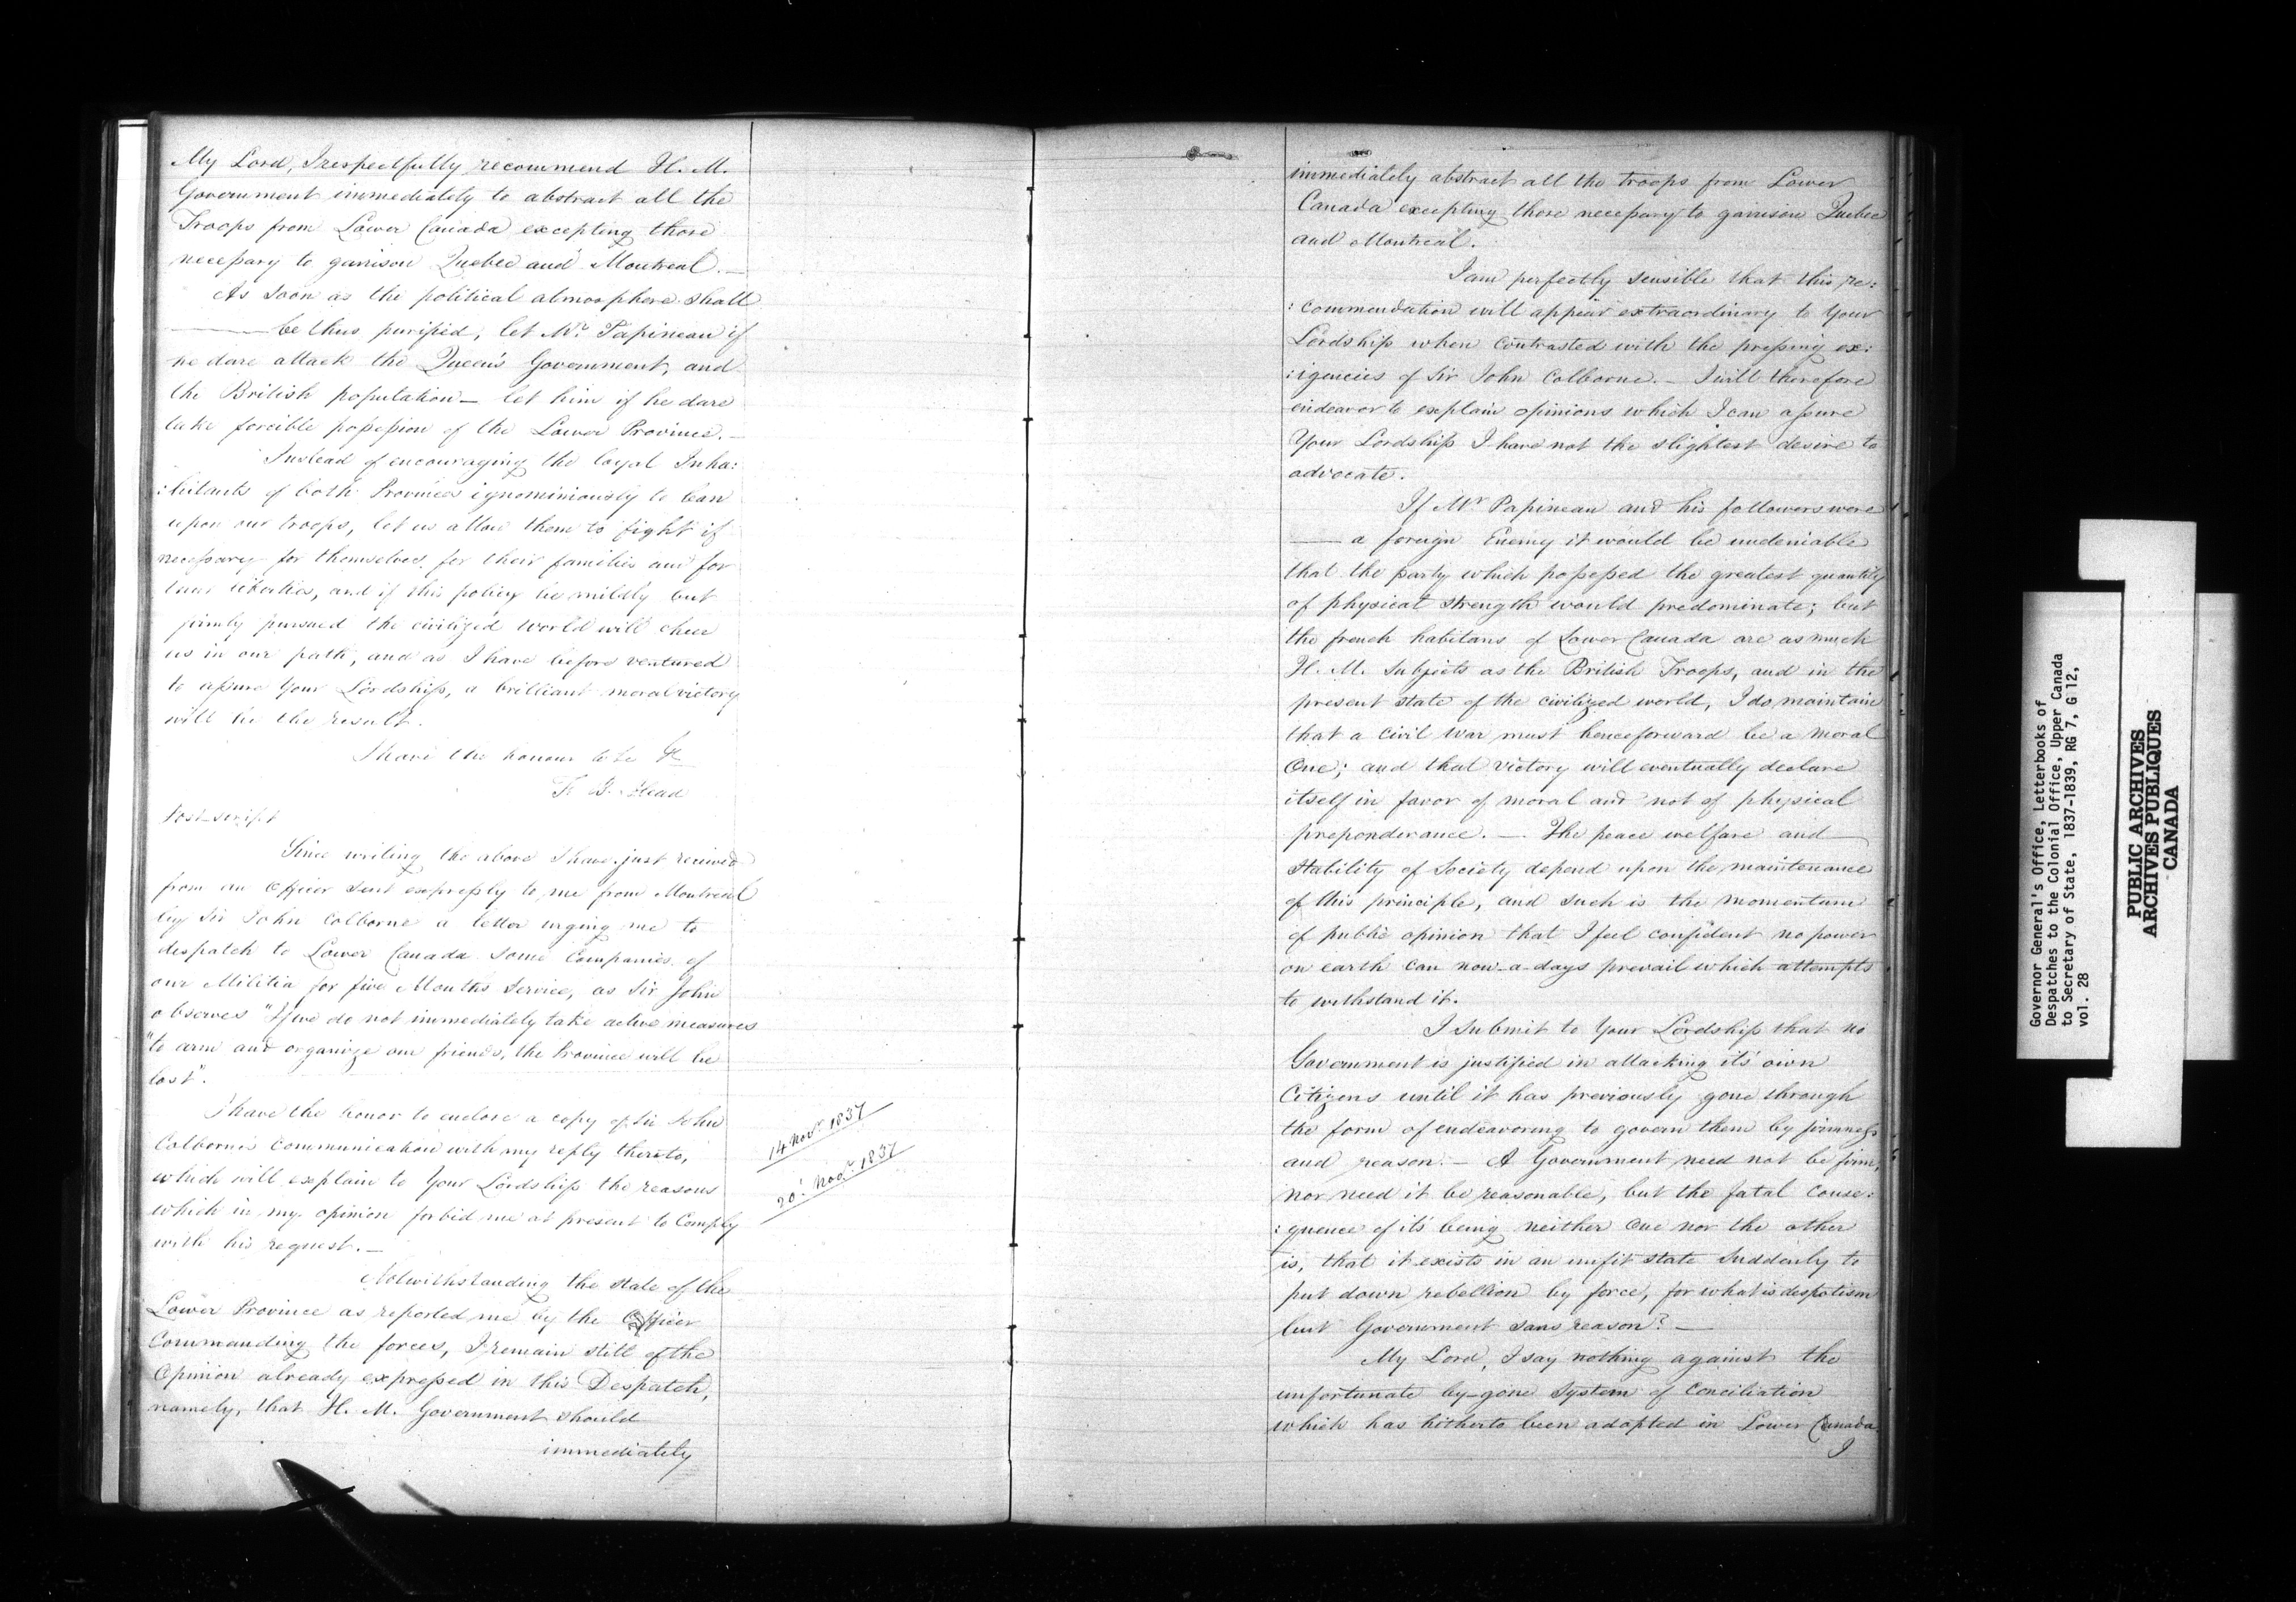 My Lord, I respectfully recommend H. M.
Government immediately to abstract all the
Troops from Lower Canada excepting those
necessary to garrison Quebec and Montreal.—
As soon as the political atmosphere shall
— be thus purified, let Mr. Papineau if
he dare attack the Queen's Government, and
the British population — let him if he dare
take forcible possession of the Lower Province.—
Instead of encouraging the loyal Inha:
:bitants of both Provinces ignominiously to lean
upon our troops, let us allow them to fight if
necessary for themselves, for their families and for
their liberties, and if this policy be mildly but
firmly pursued the civilized world will cheer
us in our path, and as I have before ventured
to assure Your Lordship, a brilliant moral victory
will be the result.
I have the honour to be &c
F. B. Head
Post-script
Since writing the above I have just received
from an Officer sent expressly to me from Montreal
by Sir John Colborne a letter urging me to
despatch to Lower Canada some Companies of
our Militia for five Months Service, as Sir John
observes "If we do not immediately take active measures
"to arm and organize our friends, the Province will be
lost".
I have the honor to enclose a copy of Sir John
Colborne's communication with my reply thereto,
which will explain to Your Lordship the reasons
which in my opinion forbid me at present to Comply
with his request.—
14 Novr. 1837
20t. Novr. 1837
Notwithstanding the state of the
Lower Province as reported me by the Officer
Commanding the forces, I remain still of the
Opinion already expressed in this Despatch,
namely, that H. M. Government should
immediately
immediately abstract all the troops from Lower
Canada excepting those necessary to garrison Quebec
and Montreal.
I am perfectly sensible that this re:
:commendation will appear extraordinary to Your
Lordship when contrasted with the pressing ex:
:igencies of Sir John Colborne.— I will therefore
endeavor to explain opinions which I can assure
Your Lordship I have not the slightest desire to
advocate.
If Mr Papineau and his followers were
— a foreign Enemy it would be undeniable
that the party which possessed the greatest quantity
of physical strength would predominate; but
the french habitans of Lower Canada are as much
H. M. Subjects as the British Troops, and in the
present state of the civilized world, I do maintain
that a civil war must henceforward be a moral
One; and that victory will eventually declare
itself in favor of moral and not of physical
preponderance.— The peace welfare and
Stability of Society depend upon the maintenance
of this principle, and such is the momentum
of public opinion that I feel confident no power
on earth can now-a-days prevail which attempts
to withstand it.
I submit to Your Lordship that no
Government is justified in attacking it's own
Citizens until it has previously gone through
the form of endeavoring to govern them by firmness
and reason.— A Government need not be firm,
nor need it be reasonable, but the fatal conse:
:quence of it's being neither one nor the other
is, that it exists in an unfit state suddenly to
put down rebellion by force, for what is despotism
but Government sans reason?—
My Lord, I say nothing against the
unfortunate by-gone System of Conciliation
which has hitherto been adopted in Lower Canada.
I
Governor General's Office, Letterbooks of
Despatches to the Colonial Office, Upper Canada
to Secretary of State, 1837-1839, RG 7, G 12,
vol. 28
PUBLIC ARCHIVES
ARCHIVES PUBLIQUES
CANADA